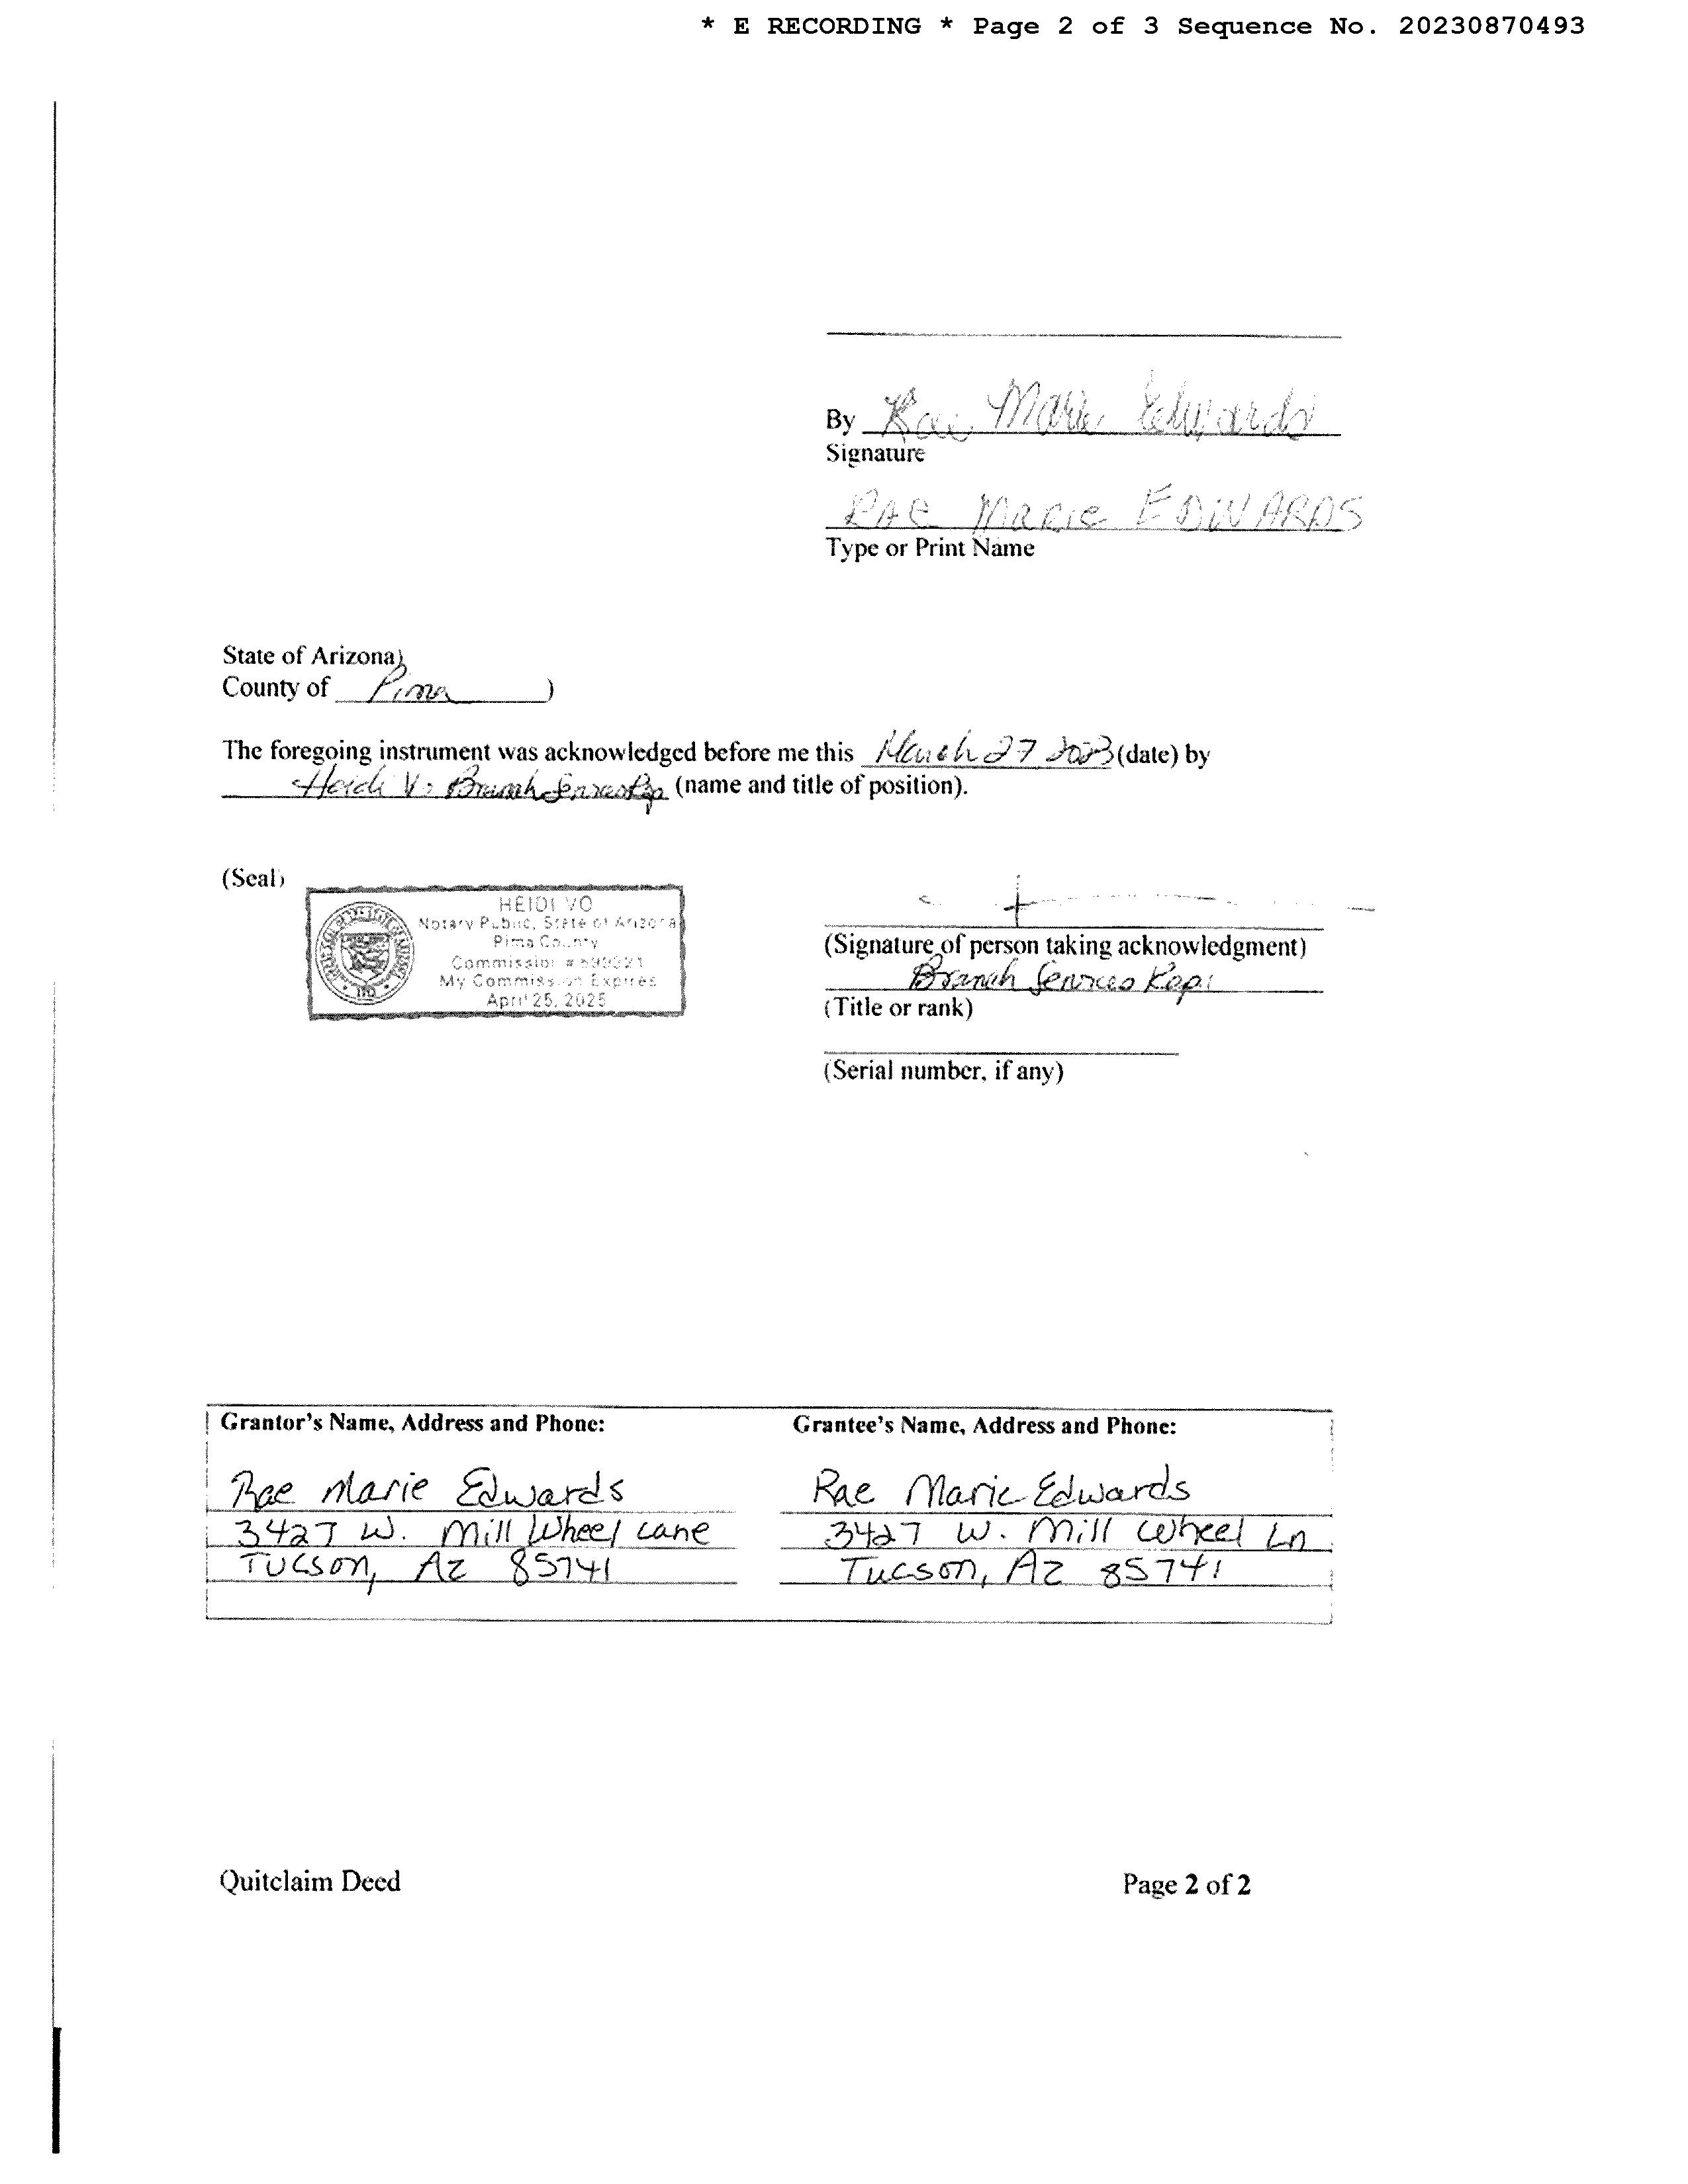 * E RECORDING * Page 2 of 3 Sequence No. 20230870493
By Rae Marie Edwards
Signature
RAE MARIE EDWARDS
Type or Print Name
State of Arizona)
County of Pima )
The foregoing instrument was acknowledged before me this March 27 2023 (date) by
Heidi Vo Branch Services Rep (name and title of position).
(Seal)
HEIDI VO
Notary Public, State of Arizona
Pima County
Commission #
My Commission Expires
April 25, 2025
(Signature of person taking acknowledgment)
Branch Services Rep.
(Title or rank)
(Serial number, if any)
Grantor's Name, Address and Phone: Grantee's Name, Address and Phone:
Rae Marie Edwards Rae Marie Edwards
3427 W. Mill Wheel Lane 3427 W. Mill Wheel Ln
Tucson, AZ 85741 Tucson, AZ 85741
Quitclaim Deed Page 2 of 2